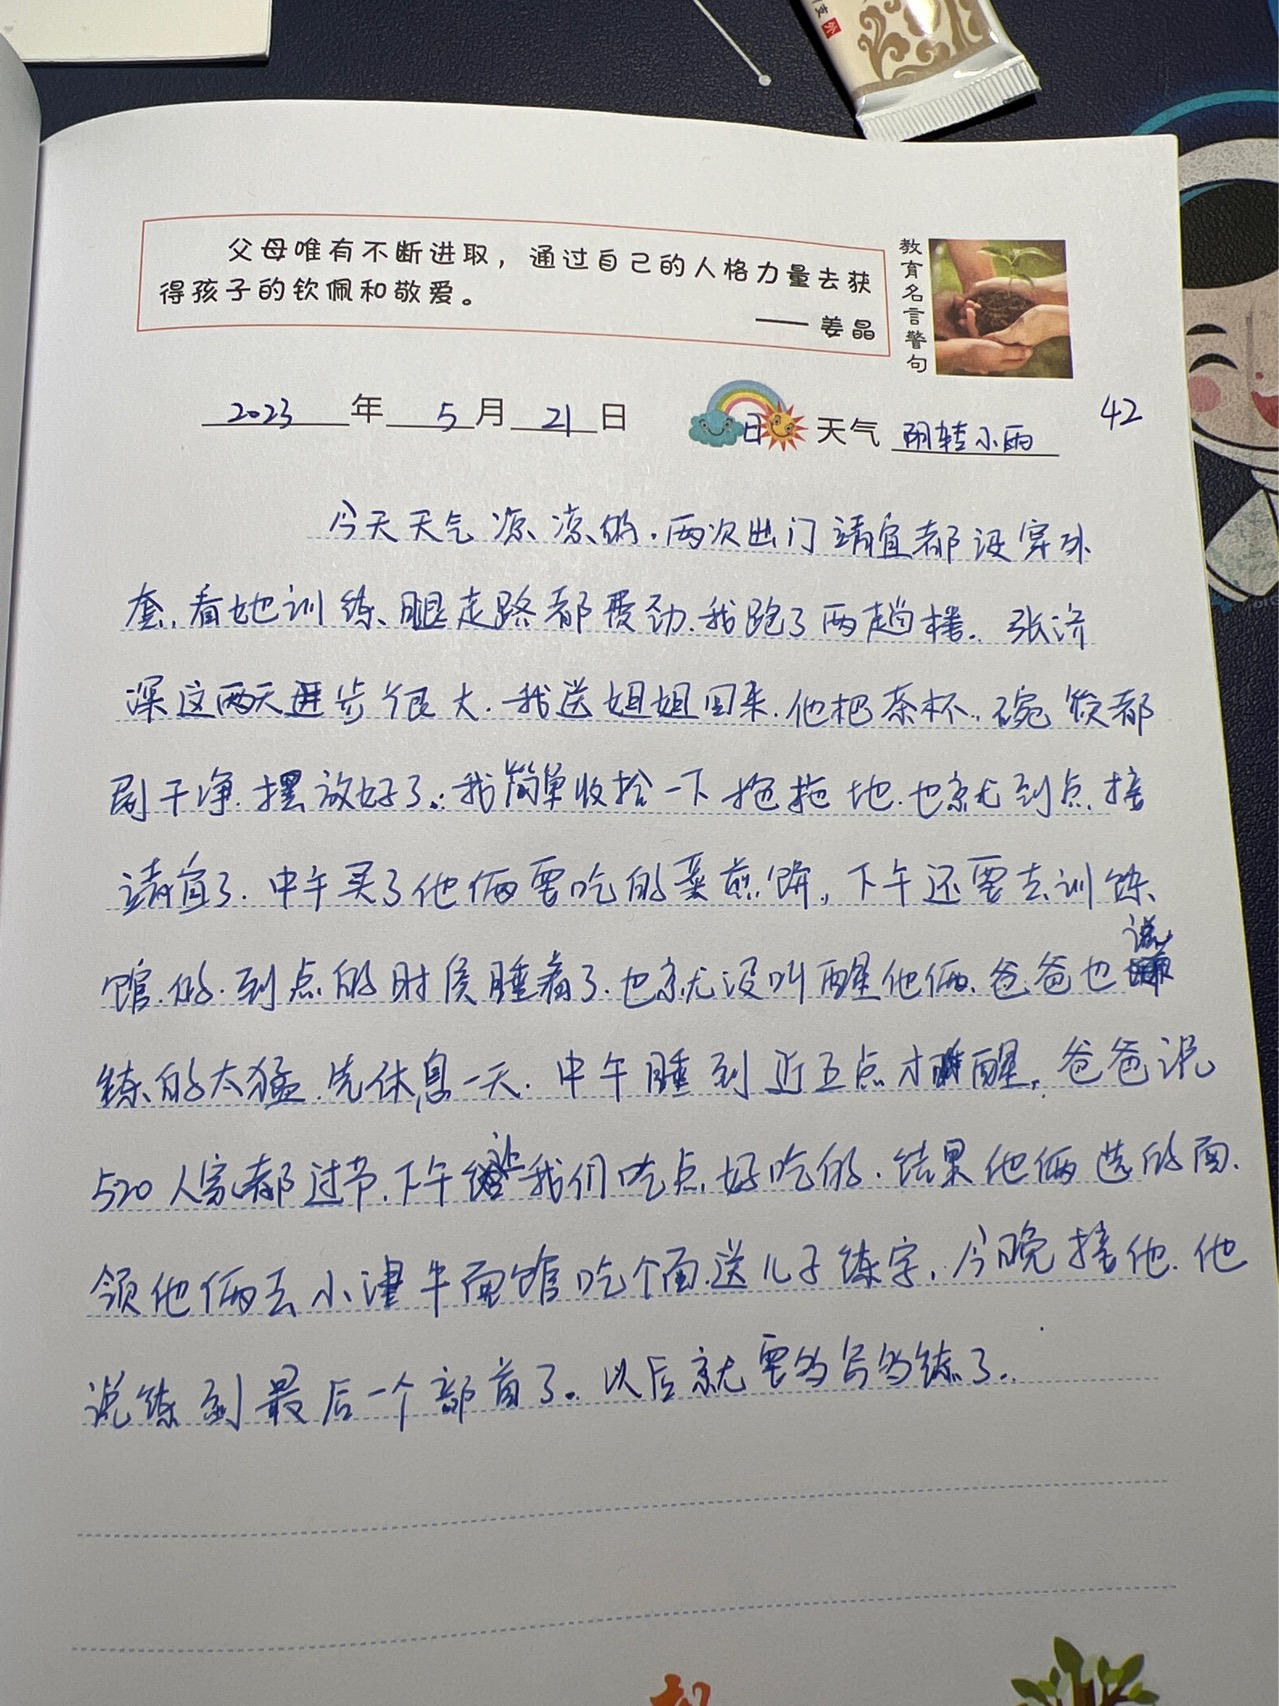 父母唯有不断进取，通过自己的人格力量去获
得孩子的钦佩和敬爱。
—— 姜晶
教育名言警句
2023年5月21日
日
天气 阴转小雨
42
今天天气凉凉的.两次出门靖宜都没穿外
套,看她训练、腿走路都费劲.我跑了两趟楼.张济
深这两天进步很大.我送姐姐回来.他把茶杯.碗筷都
刷干净.摆放好了.我简单收拾一下拖拖地.也就到点接
靖宜了.中午买了他俩要吃的菜煎饼,下午还要去训练
馆的.到点的时侯睡着了.也就没叫醒他俩.爸爸也说
练的太猛.先休息一天.中午睡到近五点才醒,爸爸说
520人家都过节.下午让我们吃点好吃的.结果他俩选的面.
领他俩去小津牛面馆吃个面.送儿子练字,今晚接他.他
说练到最后一个部首了。以后就要多写多练了.